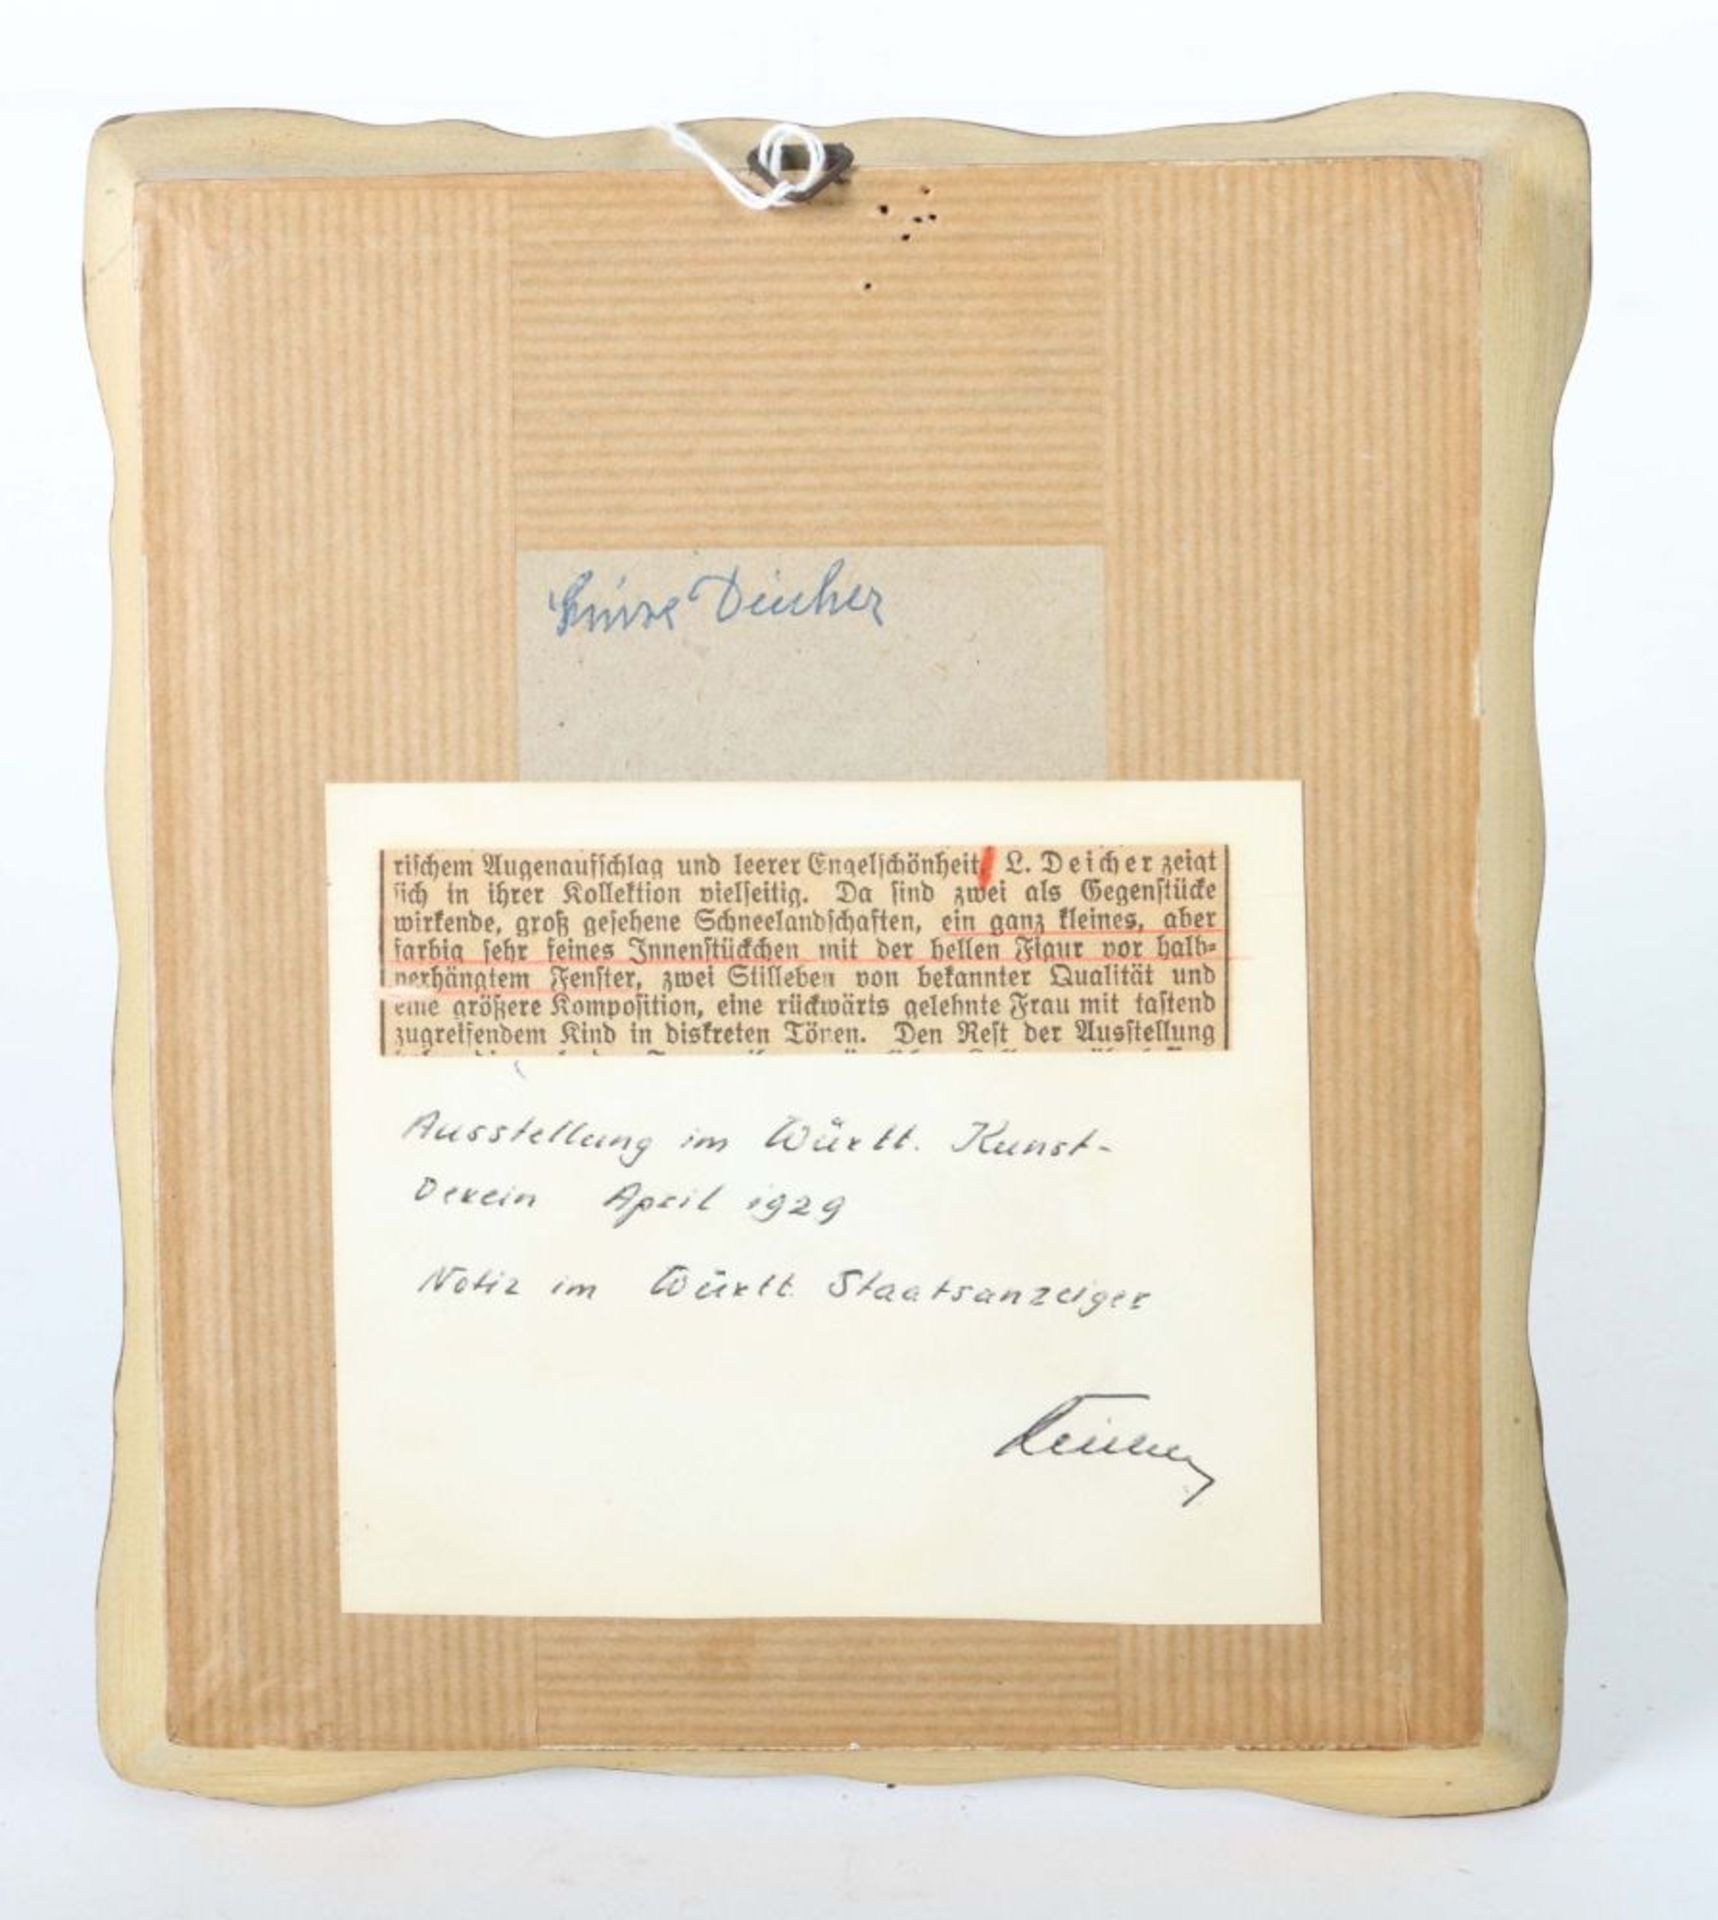 Luise Deicher
rischem Augenaufschlag und leerer Engelschönheit. L. Deicher zeigt
sich in ihrer Kollektion vielseitig. Da sind zwei als Gegenstücke
wirkende, groß gesehene Schneelandschaften, ein ganz kleines, aber
farbig sehr feines Innenstückchen mit der hellen Figur vor halb-
verhängtem Fenster, zwei Stilleben von bekannter Qualität und
eine größere Komposition, eine rückwärts gelehnte Frau mit tastend
zugreifendem Kind in diskreten Tönen. Den Rest der Ausstellung
Ausstellung im Württ. Kunst-
verein April 1929
Notiz im Württ. Staatsanzeiger